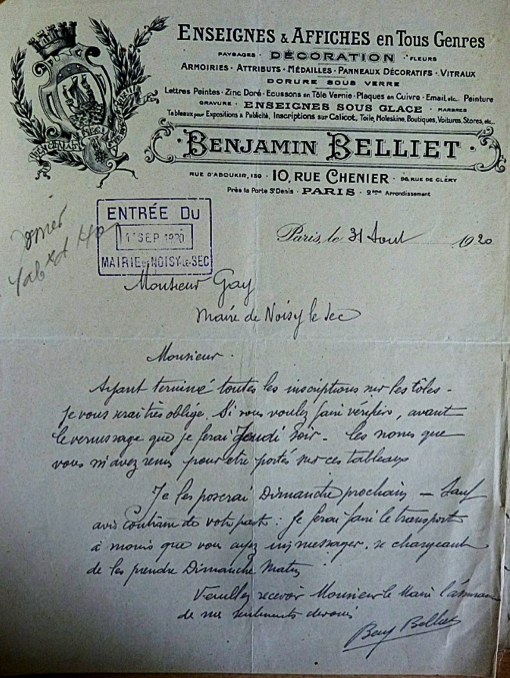 ENSEIGNES & AFFICHES en Tous Genres
PAYSAGES · DÉCORATION · FLEURS
ARMOIRIES · ATTRIBUTS · MÉDAILLES · PANNEAUX DÉCORATIFS · VITRAUX
DORURE SOUS VERRE
Lettres Peintes · Zinc Doré · Ecussons en Tôle Vernie · Plaques en Cuivre · Email, etc. Peinture
GRAVURE · ENSEIGNES SOUS GLACE · MARBRES
Tableaux pour Expositions & Publicité, Inscriptions sur Calicot, Toile, Moleskine, Boutiques, Voitures, Stores, etc.
BENJAMIN BELLIET
RUE D'ABOUKIR, 139 · 10, RUE CHENIER · 36, RUE DE CLÉRY
Près la Porte St Denis · PARIS · 2ème Arrondissement
ENTRÉE DU
1 SEP 1920
MAIRIE DE NOISY-LE-SEC
Paris, le 31 Aout 1920
Monsieur Gay
Maire de Noisy le Sec
Monsieur.
Ayant terminé toutes les inscriptions sur les tôles -
Je vous serai très obligé, Si vous voulez faire vérifier, avant
le vernissage que je ferai Jeudi Soir - les noms que
vous m'avez remis pour être portés sur ces tableaux
Je les poserai Dimanche prochain - Sauf
avis contraire de votre part : Je ferai faire le transport
à moins que vous ayez un messager, se chargeant
de les prendre Dimanche Matin
Veuillez recevoir Monsieur le Maire l'assurance
de mes sentiments dévoués
Benj Belliet